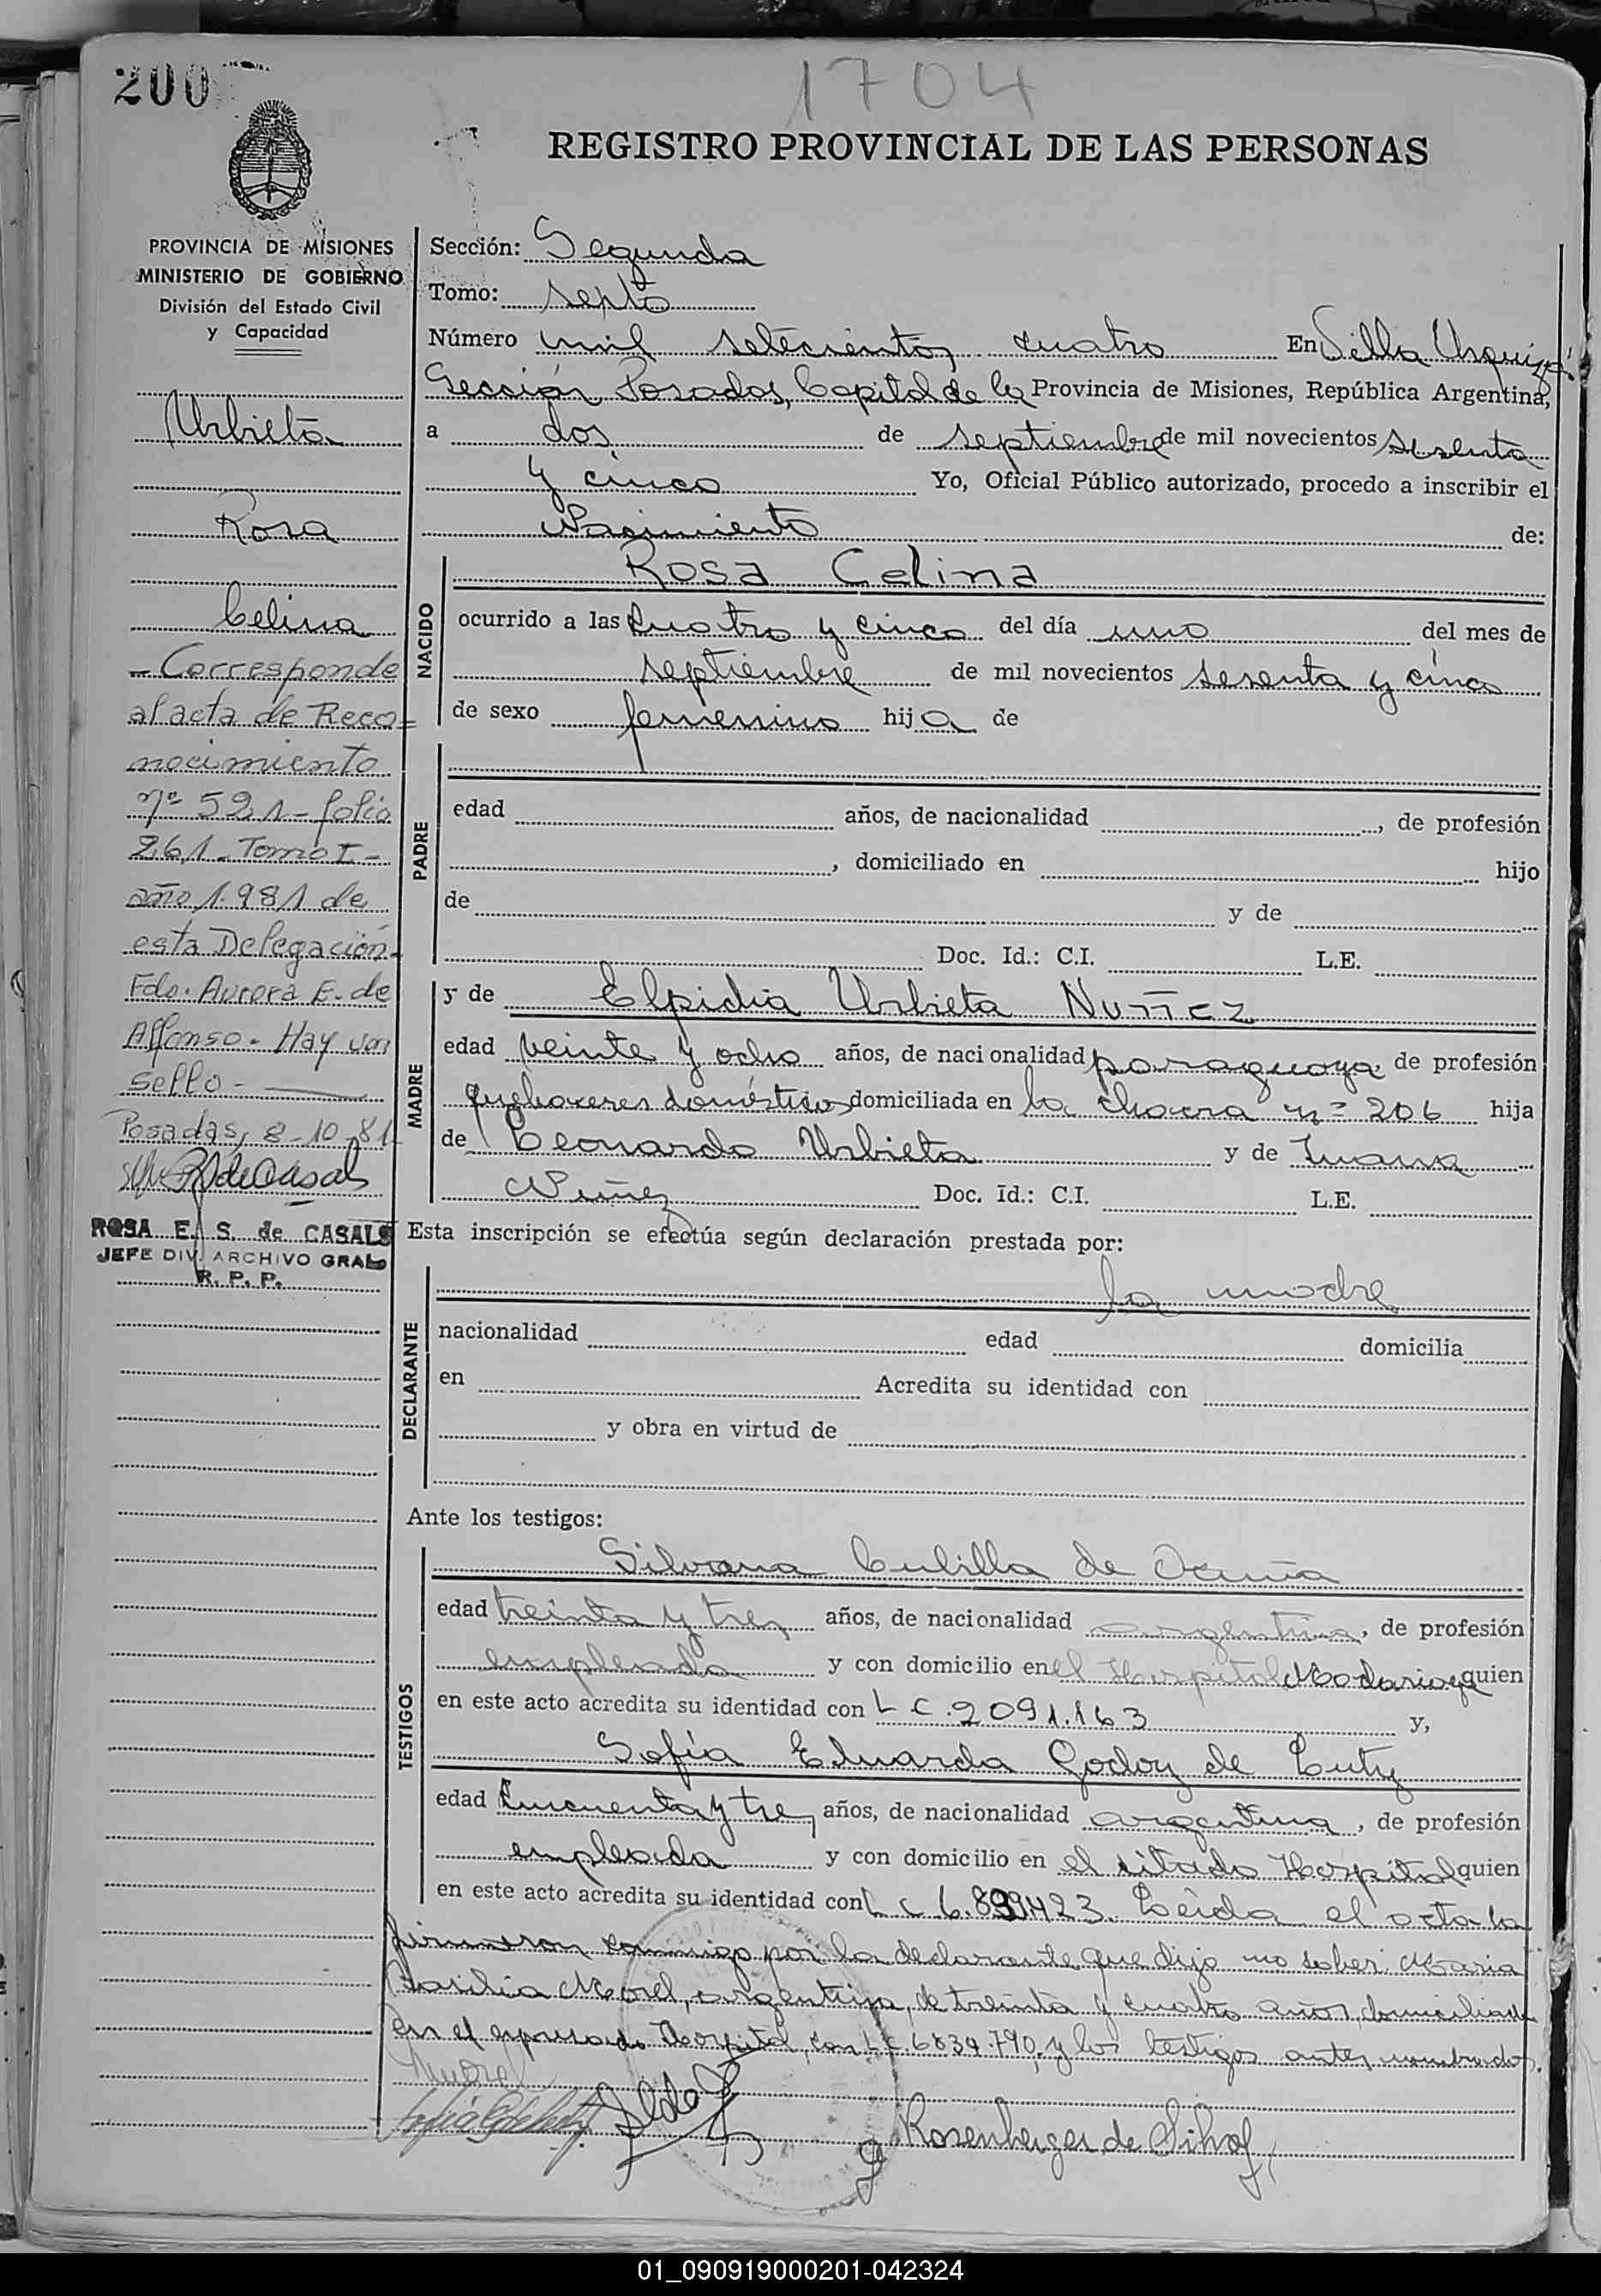 200
1704
REGISTRO PROVINCIAL DE LAS PERSONAS
PROVINCIA DE MISIONES
MINISTERIO DE GOBIERNO
División del Estado Civil
y Capacidad
Urbieta
Rosa
Celina
- Corresponde
al acta de Reco=
nocimiento
nº 521 - folio
261 - Tomo I -
año 1.981 de
esta Delegación -
Fdo. Aurora E. de
Alfonso. Hay un
sello -
Posadas, 8-10-81
ROSA E. S. de CASALS
JEFE DIV. ARCHIVO GRAL
R. P. P.
Sección: Segunda
Tomo: septo
Número mil setecientos cuatro En Villa Urquiza
Sección Posadas, Capital de la Provincia de Misiones, República Argentina,
a dos de septiembre de mil novecientos sesenta
y cinco Yo, Oficial Público autorizado, procedo a inscribir el
Nacimiento de:
NACIDO
Rosa Celina
ocurrido a las cuatro y cinco del día uno del mes de
septiembre de mil novecientos sesenta y cinco
de sexo femenino hija de
PADRE
edad años, de nacionalidad , de profesión
, domiciliado en hijo
de y de
Doc. Id.: C.I. L.E.
MADRE
y de Elpidia Urbieta Nuñez
edad veinte y ocho años, de nacionalidad paraguaya de profesión
quehaceres domésticos domiciliada en la chacra nº 206 hija
de Leonardo Urbieta y de Juana
Nuñez Doc. Id.: C.I. L.E.
Esta inscripción se efectúa según declaración prestada por:
DECLARANTE
la madre
nacionalidad edad domicilia
en Acredita su identidad con
y obra en virtud de
Ante los testigos:
TESTIGOS
Silvana Cubilla de Acuña
edad treinta y tres años, de nacionalidad argentina, de profesión
empleada y con domicilio en el Hospital Madariaga quien
en este acto acredita su identidad con L C. 2091.163 y,
Sofía Eduarda Godoy de
edad cincuenta y tres años, de nacionalidad argentina, de profesión
empleada y con domicilio en el citado Hospital quien
en este acto acredita su identidad con L C 6.899.423. Leída el acta la
firmaron conmigo por la declarante que dijo no saber María
Basilia Morel, argentina, de treinta y cuatro años, domiciliada
en el expresado Hospital, con L.C. 6834.790, y los testigos antes nombrados.
Morel
Rosenberger de Silva
01_090919000201-042324